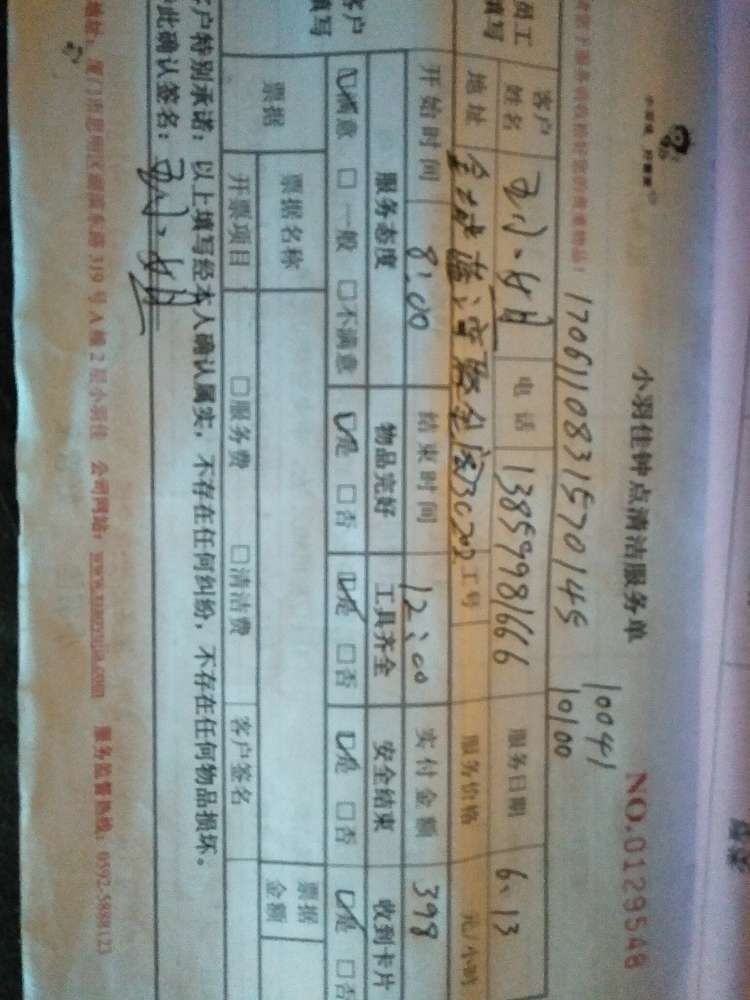 小羽佳钟点清洁服务单
NO.0129548
10041
10100
170611083157014S
客户姓名 电话 13859981666 服务日期 6.13
员工填写
地址 工号 服务价格 元/小时
开始时间 8:00 结束时间 12:00 实付金额 398
客户填写
服务态度 物品完好 工具齐全 安全结束 收到卡片
☑满意 □一般 □不满意 ☑是 □否 ☑是 □否 ☑是 □否 ☑是 □否
票据 票据名称 票据金额
开票项目 □服务费 □清洁费 客户签名
客户特别承诺：以上填写经本人确认属实，不存在任何纠纷，不存在任何物品损坏。
此确认签名：
地址：厦门市思明区 东路319号A幢2层小羽佳 公司网站：www.xiaoyujia.com 服务监督热线：0592-5888123